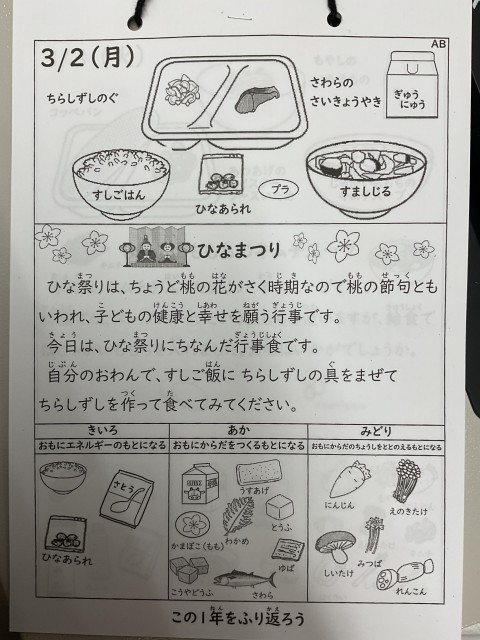 AB
3/2(月)
ちらしずしのぐ
さわらの
さいきょうやき
ぎゅう
にゅう
すしごはん
ひなあられ
プラ
すましじる
ひなまつり
ひな祭りは、ちょうど桃の花がさく時期なので桃の節句とも
いわれ、子どもの健康と幸せを願う行事です。
今日は、ひな祭りにちなんだ行事食です。
自分のおわんで、すしご飯に ちらしずしの具をまぜて
ちらしずしを作って食べてみてください。
きいろ
あか
みどり
おもにエネルギーのもとになる
おもにからだをつくるもとになる
おもにからだのちょうしをととのえるもとになる
さとう
ひなあられ
うすあげ
とうふ
わかめ
かまぼこ(もも)
ゆば
こうやどうふ
さわら
にんじん
えのきたけ
しいたけ
みつば
れんこん
この1年をふり返ろう